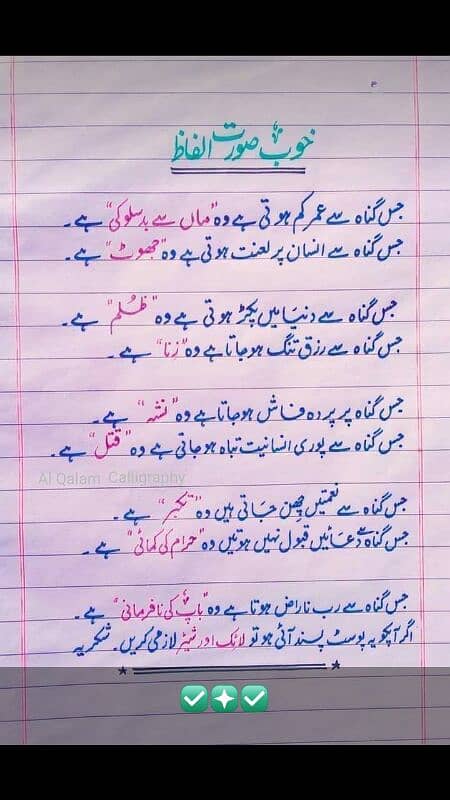 خوب صورت الفاظ
جس گناہ سے عمر کم ہوتی ہے وہ "ماں سے بدسلوکی" ہے۔
جس گناہ سے انسان پر لعنت ہوتی ہے وہ "جھوٹ" ہے۔
جس گناہ سے دنیا میں پکڑ ہوتی ہے وہ "ظلم" ہے۔
جس گناہ سے رزق تنگ ہو جاتا ہے وہ "زنا" ہے۔
جس گناہ پر پردہ فاش ہو جاتا ہے وہ "نشہ" ہے۔
جس گناہ سے پوری انسانیت تباہ ہو جاتی ہے وہ "قتل" ہے۔
Al Qalam Calligraphy
جس گناہ سے نعمتیں چھن جاتی ہیں وہ "تکبر" ہے۔
جس گناہ سے دعائیں قبول نہیں ہوتیں وہ "حرام کی کمائی" ہے۔
جس گناہ سے رب ناراض ہوتا ہے وہ "باپ کی نافرمانی" ہے۔
اگر آپکو یہ پوسٹ پسند آئی ہو تو لائک اور شیئر لازمی کریں۔ شکریہ